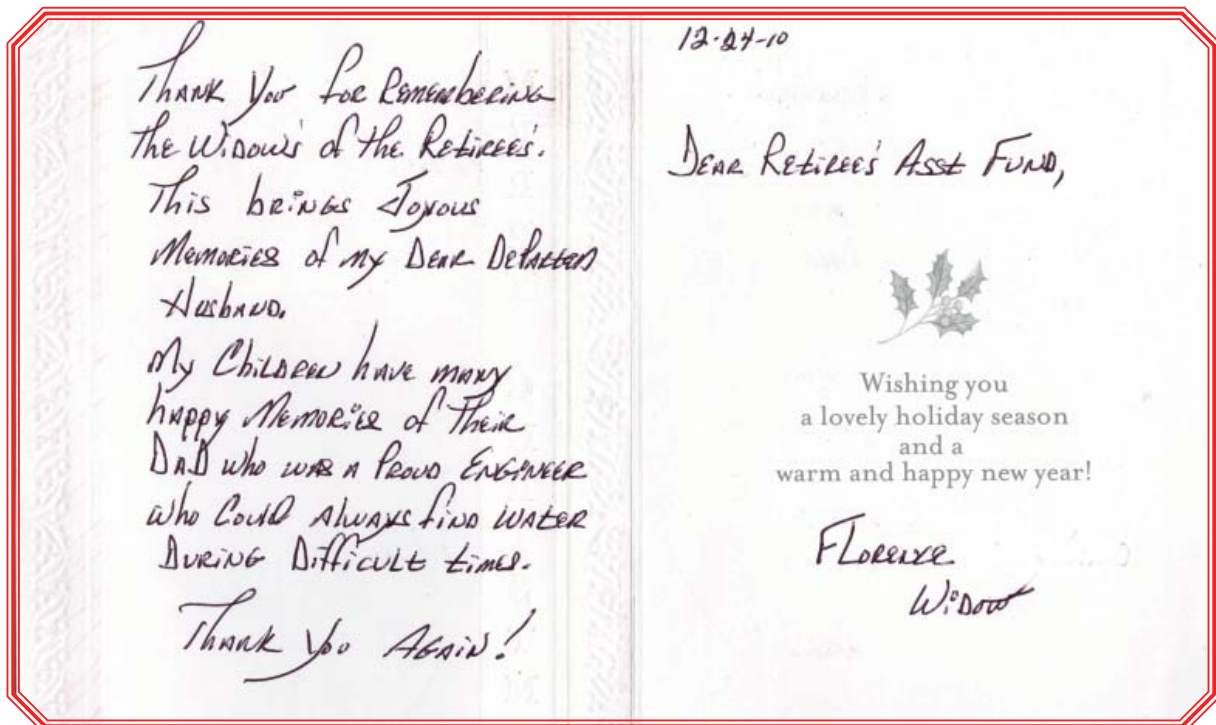 Thank You for Remembering
the Widow's of the Retiree's.
This brings Joyous
Memories of my Dear Departed
Husband.
My Children have many
happy Memories of Their
Dad who was a Proud Engineer
who Could Always find water
During Difficult times.
Thank you Again!
12-24-10
Dear Retiree's Asst Fund,
Wishing you
a lovely holiday season
and a
warm and happy new year!
Florence
Widow